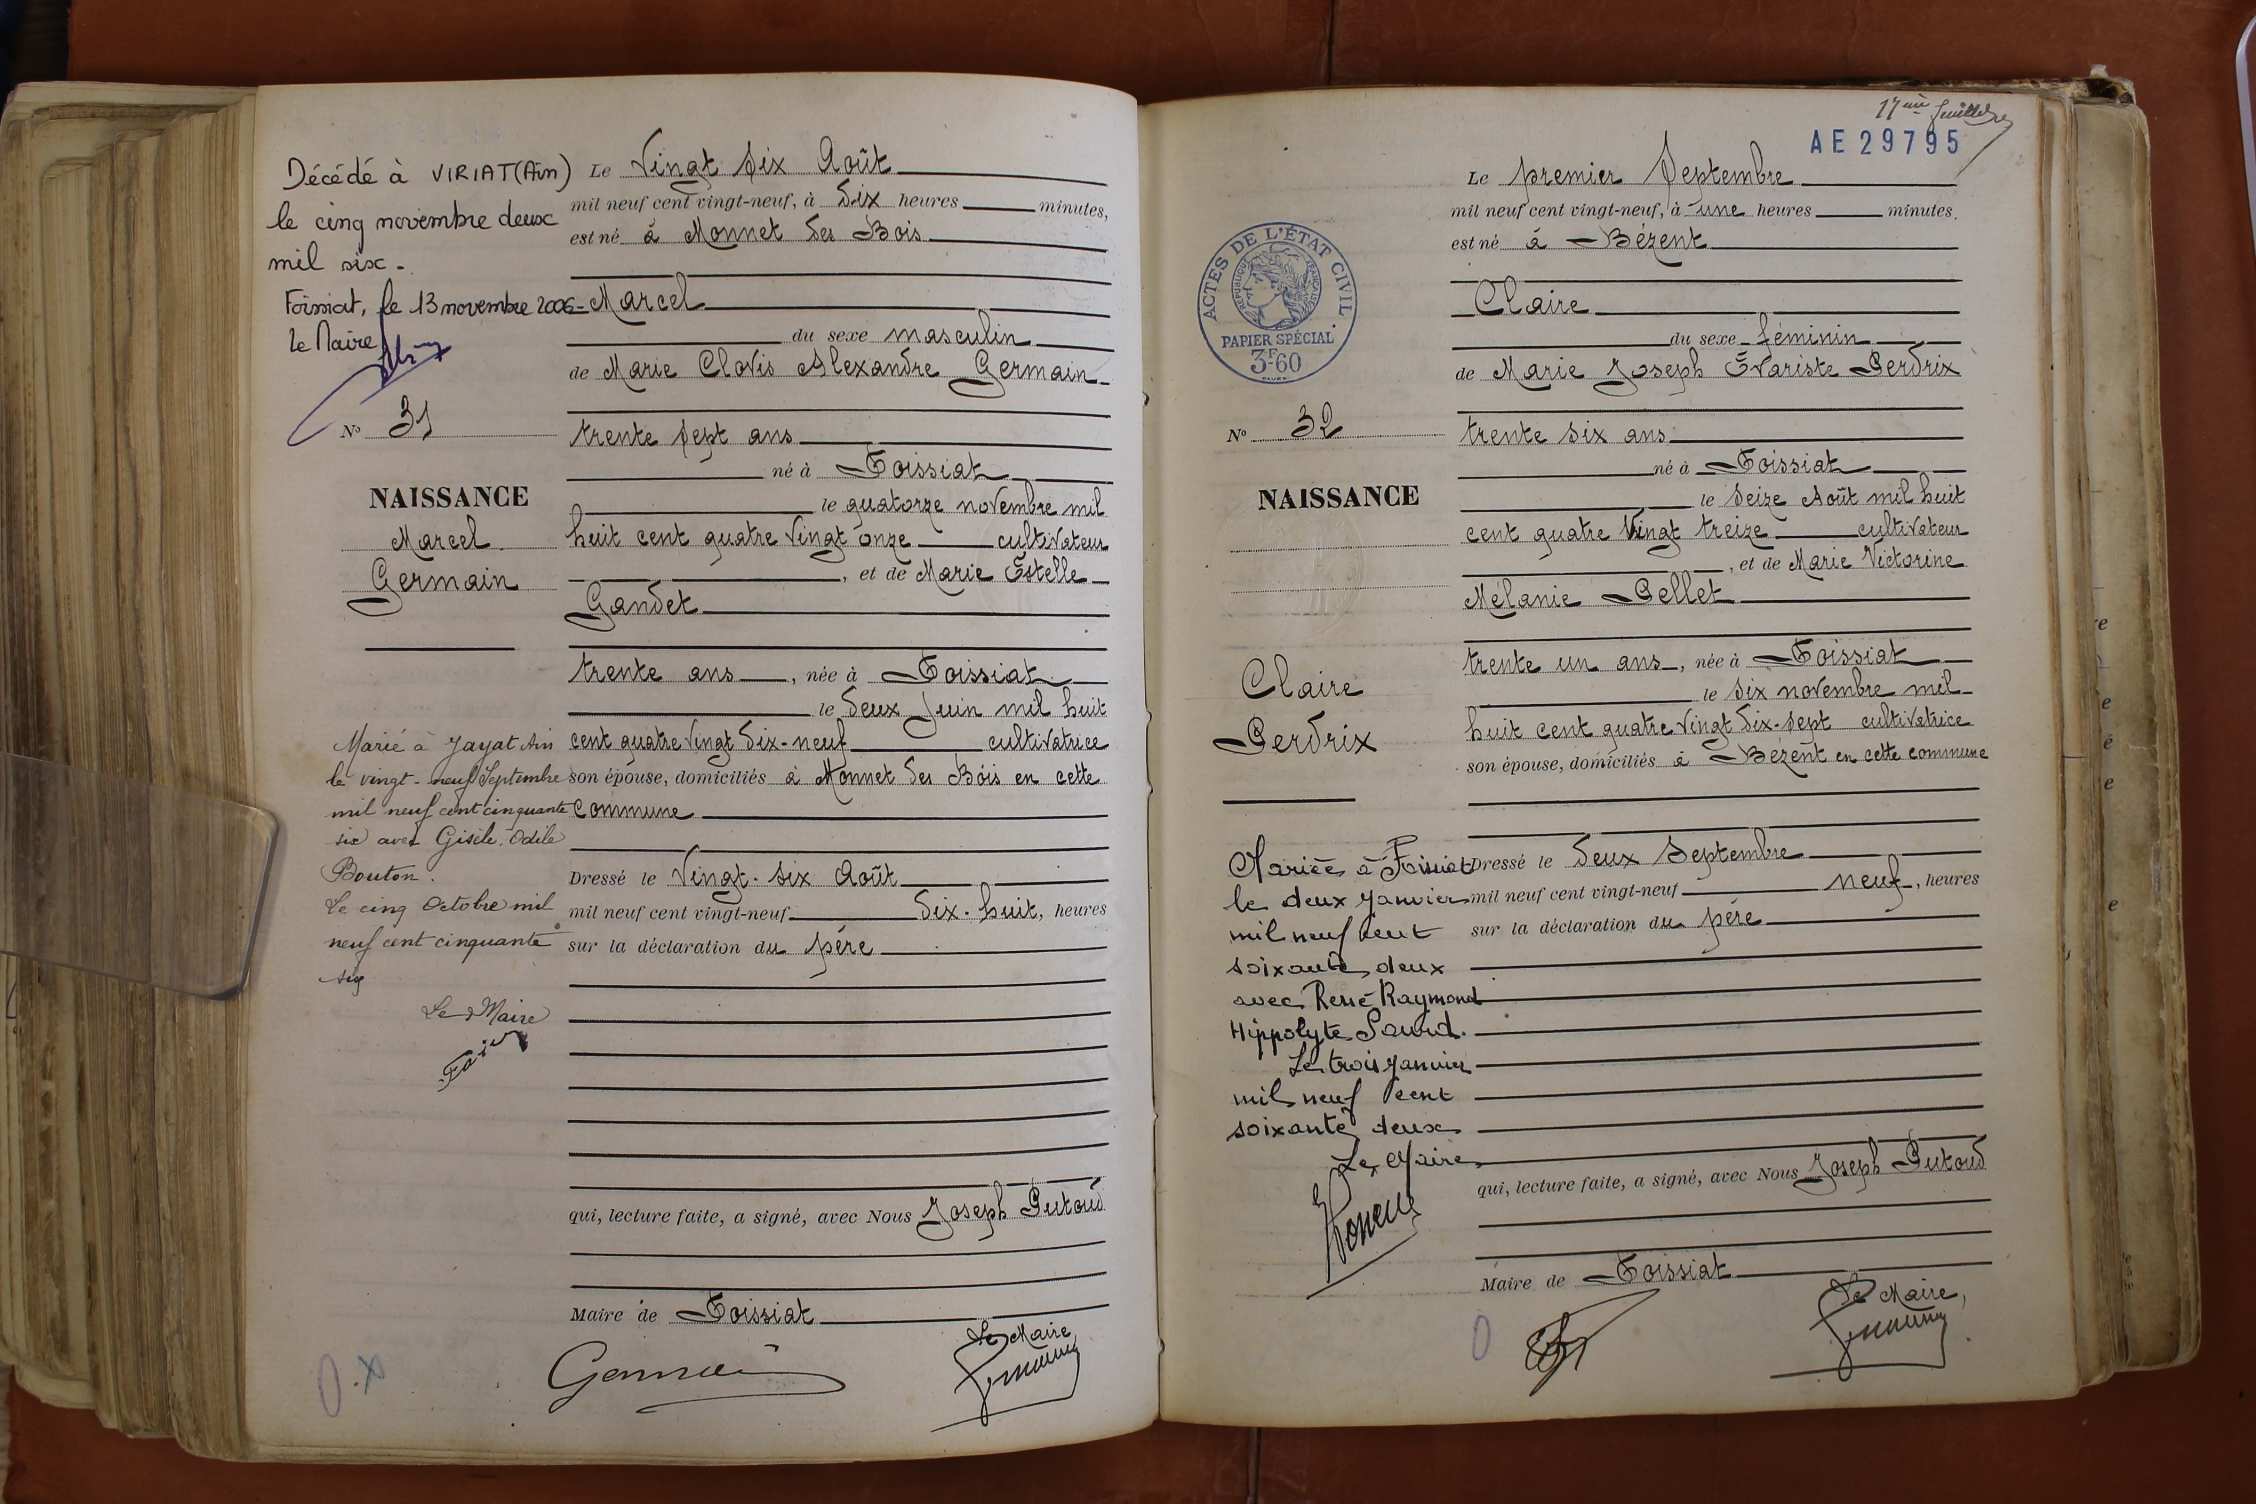 Décédé à VIRIAT (Ain)
le cinq novembre deux
mil six.
Foissiat, le 13 novembre 2006
Le Maire
N° 31
NAISSANCE
Marcel
Germain
Marié à Jayat Ain
le vingt-neuf Septembre
mil neuf cent cinquante
six avec Gisèle Odile
Bouton.
Le cinq Octobre mil
neuf cent cinquante
six
Le Maire
Le Vingt Six Août
mil neuf cent vingt-neuf, à Six heures minutes,
est né à Monnet des Bois
Marcel
du sexe masculin
de Marie Clovis Alexandre Germain
trente sept ans
né à Foissiat
le quatorze novembre mil
huit cent quatre vingt onze cultivateur
, et de Marie Estelle
Gandet
trente ans, née à Foissiat
le deux Juin mil huit
cent quatre vingt dix-neuf cultivatrice
son épouse, domiciliés à Monnet des Bois en cette
commune
Dressé le Vingt-six Août
mil neuf cent vingt-neuf dix-huit, heures
sur la déclaration du père
qui, lecture faite, a signé, avec Nous Joseph Putoud
Maire de Foissiat
Le Maire
Germain
17ème feuillet
AE29795
ACTES DE L'ÉTAT CIVIL
RÉPUBLIQUE FRANÇAISE
PAPIER SPÉCIAL
3F60
N° 32
NAISSANCE
Claire
Perdrix
Mariée à Foissiat
le deux Janvier
mil neuf cent
soixante deux
avec René Raymond
Hippolyte
Le trois Janvier
mil neuf cent
soixante deux
Le Maire
Le premier Septembre
mil neuf cent vingt-neuf, à une heures minutes.
est né à Bézent
Claire
du sexe féminin
de Marie Joseph Évariste Perdrix
trente six ans
né à Foissiat
le seize Août mil huit
cent quatre vingt treize cultivateur
, et de Marie Victorine
Mélanie Pellet
trente un ans, née à Foissiat
le six novembre mil
huit cent quatre vingt dix-sept cultivatrice
son épouse, domiciliés à Bézent en cette commune
Dressé le deux Septembre
mil neuf cent vingt-neuf neuf, heures
sur la déclaration du père
qui, lecture faite, a signé, avec Nous Joseph Putoud
Maire de Foissiat
Le Maire,